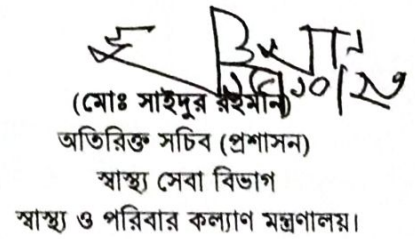 (মোঃ সাইদুর রহমান)
অতিরিক্ত সচিব (প্রশাসন)
স্বাস্থ্য সেবা বিভাগ
স্বাস্থ্য ও পরিবার কল্যাণ মন্ত্রণালয়।